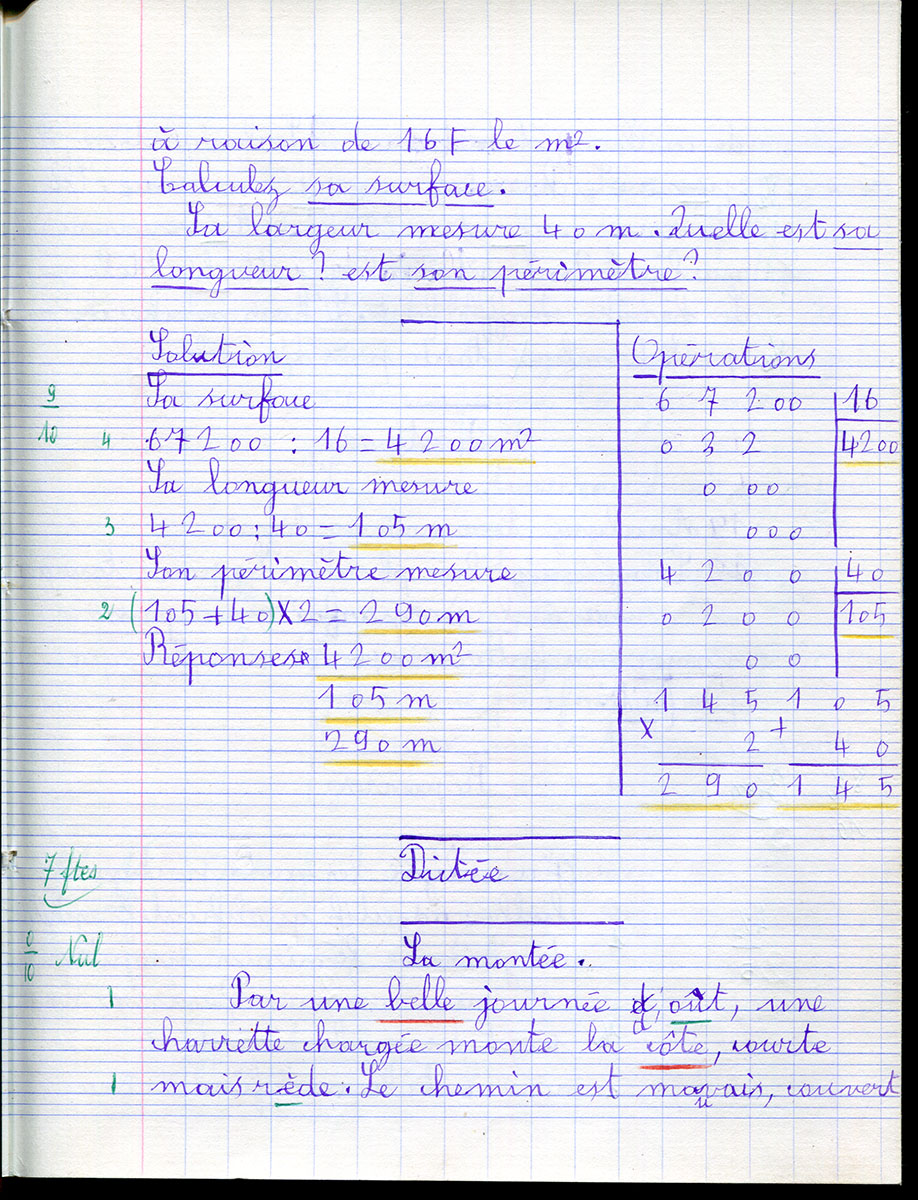 à raison de 16 F le m².
Calculez sa surface.
La largeur mesure 40 m. Quelle est sa
longueur ? est son périmètre ?
Solution
Sa surface
9
10
4
67200 : 16 = 4200 m²
La longueur mesure
3
4200 : 40 = 105 m
Son périmètre mesure
2
(105 + 40) X 2 = 290 m
Réponses 4200 m²
105 m
290 m
Opérations
6 7 2 0 0 16
0 3 2 4200
0 0 0
0 0 0
4 2 0 0 40
0 2 0 0 105
0 0
1 4 5 1 0 5
X 2 + 4 0
2 9 0 1 4 5
7 ftes
Dictée
0
10
Nul
La montée.
1
Par une belle journée d'oût, une
charrette chargée monte la côte, courte
1
mais rède. Le chemin est mauvais, couvert